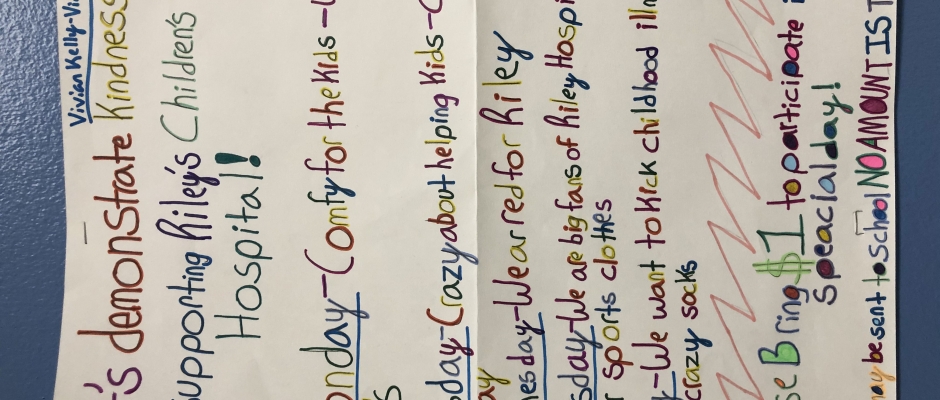 Vivian Kelly-Vi
's demonstrate Kindness
supporting Riley's Children's
Hospital!
onday-Comfy for the kids -
s
day-Crazy about helping kids-C
ay
nesday-We are red for Riley
sday-We are big fans of Riley Hospi
r sports clothes
y-We want to kick childhood illn
crazy socks
se Bring $1 to participate i
Speacial day!
may be sent to school NO AMOUNT IS T